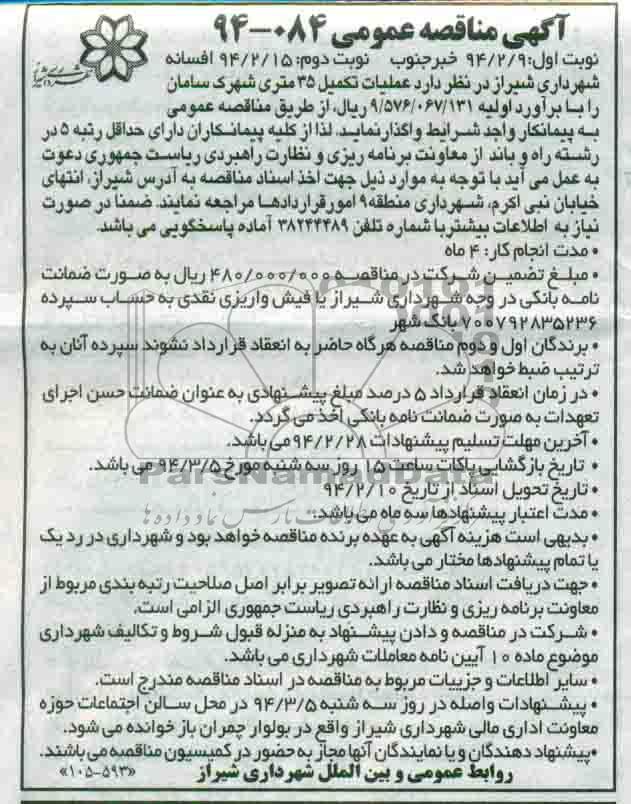 آگهی مناقصه عمومی ۰۸۴-۹۴
نوبت اول: ۹۴/۲/۹ خبرجنوب نوبت دوم: ۹۴/۲/۱۵ افسانه
شهرداری شیراز در نظر دارد عملیات تکمیل ۳۵ متری شهرک سامان
را با برآورد اولیه ۹/۵۷۶/۰۶۷/۱۳۱ ریال، از طریق مناقصه عمومی
به پیمانکار واجد شرایط واگذار نماید. لذا از کلیه پیمانکاران دارای حداقل رتبه ۵ در
رشته راه و باند از معاونت برنامه ریزی و نظارت راهبردی ریاست جمهوری دعوت
به عمل می آید با توجه به موارد ذیل جهت اخذ اسناد مناقصه به آدرس شیراز، انتهای
خیابان نبی اکرم، شهرداری منطقه۹ امورقراردادها مراجعه نمایند. ضمنا در صورت
نیاز به اطلاعات بیشتر با شماره تلفن ۳۸۲۴۴۴۸۹ آماده پاسخگویی می باشد.
• مدت انجام کار: ۴ ماه
• مبلغ تضمین شرکت در مناقصه ۴۸۰/۰۰۰/۰۰۰ ریال به صورت ضمانت
نامه بانکی در وجه شهرداری شیراز یا فیش واریزی نقدی به حساب سپرده
۷۰۰۷۹۲۸۳۵۲۳۶ بانک شهر
• برندگان اول و دوم مناقصه هرگاه حاضر به انعقاد قرارداد نشوند سپرده آنان به
ترتیب ضبط خواهد شد.
• در زمان انعقاد قرارداد ۵ درصد مبلغ پیشنهادی به عنوان ضمانت حسن اجرای
تعهدات به صورت ضمانت نامه بانکی اخذ می گردد.
• آخرین مهلت تسلیم پیشنهادات ۹۴/۲/۲۸ می باشد.
• تاریخ بازگشایی پاکات ساعت ۱۵ روز سه شنبه مورخ ۹۴/۳/۵ می باشد.
ParsNamadData
• تاریخ تحویل اسناد از تاریخ ۹۴/۲/۱۰
• مدت اعتبار پیشنهادها سه ماه می باشد.
• بدیهی است هزینه آگهی به عهده برنده مناقصه خواهد بود و شهرداری در رد یک
یا تمام پیشنهادها مختار می باشد.
• جهت دریافت اسناد مناقصه ارائه تصویر برابر اصل صلاحیت رتبه بندی مربوط از
معاونت برنامه ریزی و نظارت راهبردی ریاست جمهوری الزامی است.
• شرکت در مناقصه و دادن پیشنهاد به منزله قبول شروط و تکالیف شهرداری
موضوع ماده ۱۰ آیین نامه معاملات شهرداری می باشد.
• سایر اطلاعات و جزییات مربوط به مناقصه در اسناد مناقصه مندرج است.
• پیشنهادات واصله در روز سه شنبه ۹۴/۳/۵ در محل سالن اجتماعات حوزه
معاونت اداری مالی شهرداری شیراز واقع در بولوار چمران باز خوانده می شود.
•پیشنهاد دهندگان و یا نمایندگان آنها مجاز به حضور در کمیسیون مناقصه می باشند.
روابط عمومی و بین الملل شهرداری شیراز «۱۰۵-۵۹۳»